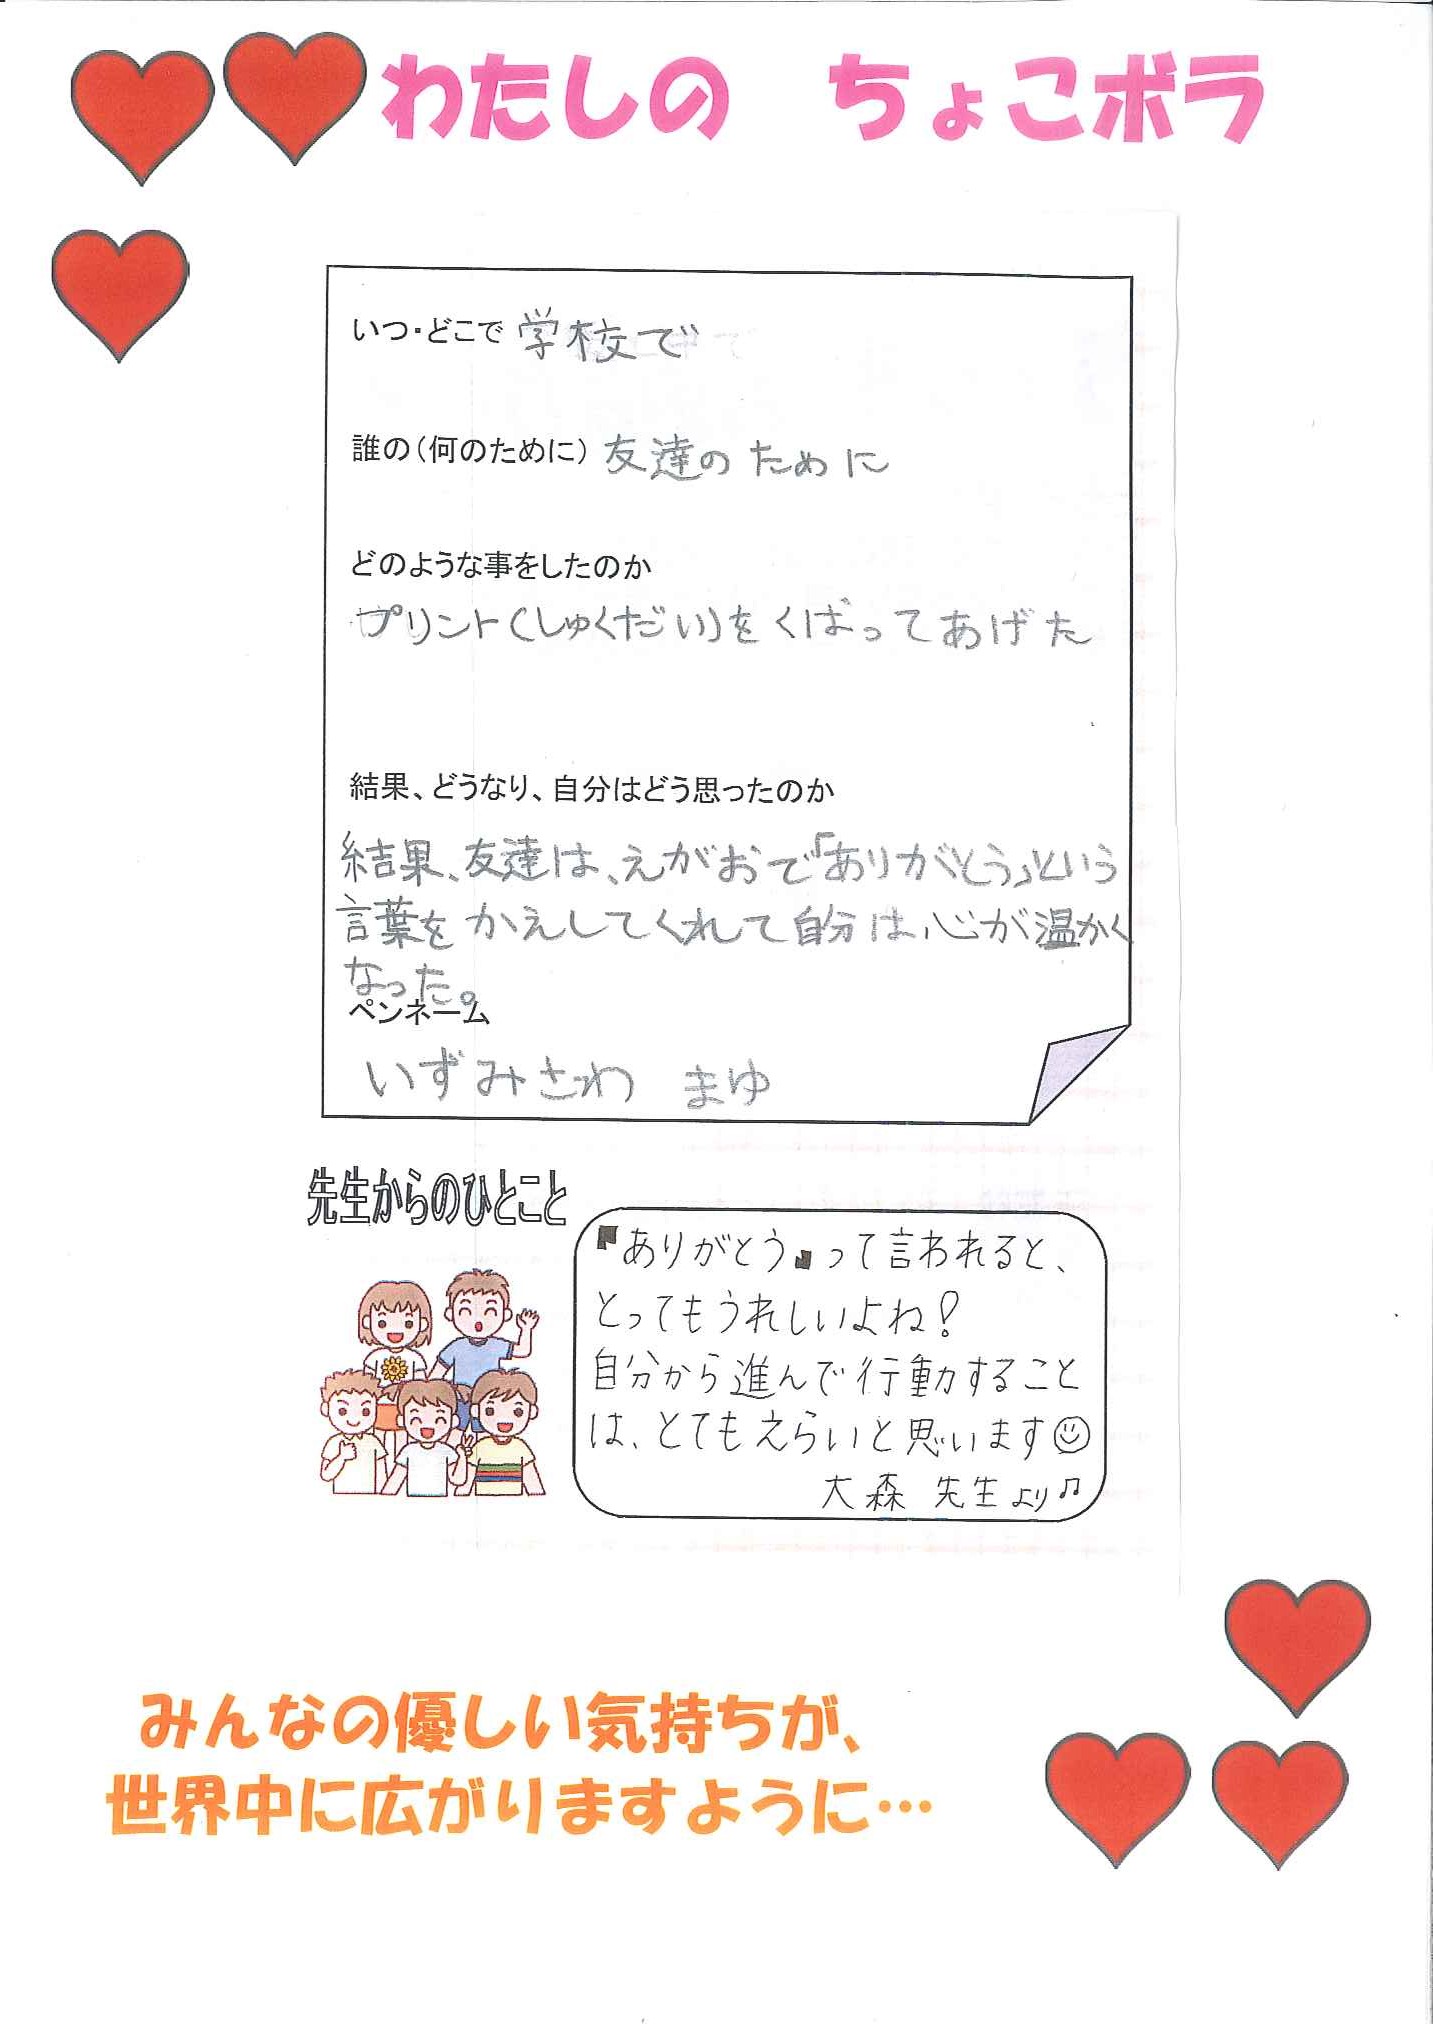 わたしの　ちょこボラ
いつ・どこで 学校で
誰の（何のために） 友達のために
どのような事をしたのか
プリント(しゅくだい)をくばってあげた
結果、どうなり、自分はどう思ったのか
結果、友達は、えがおで「ありがとう」という
言葉をかえしてくれて自分は心が温かく
なった。
ペンネーム
いずみさわ まゆ
先生からのひとこと
『ありがとう』って言われると、
とってもうれしいよね!
自分から進んで行動すること
は、とてもえらいと思います☺
大森 先生より♫
みんなの優しい気持ちが、
世界中に広がりますように…